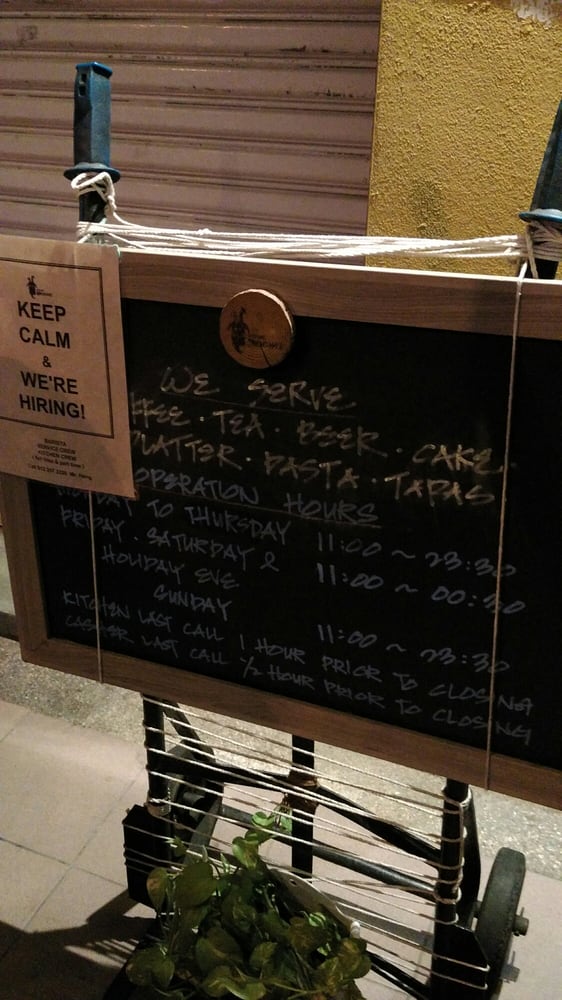 KEEP
CALM
&
WE'RE
HIRING!
BARISTA
SERVICE CREW
KITCHEN CREW
( full time & part time )
WE SERVE
FFEE · TEA · BEER · CAKE
PLATTER · PASTA · TAPAS
OPERATION HOURS
MONDAY TO THURSDAY 11:00 ~ 23:30
FRIDAY · SATURDAY &
HOLIDAY EVE 11:00 ~ 00:30
SUNDAY 11:00 ~ 23:30
KITCHEN LAST CALL 1 HOUR PRIOR TO CLOSING
CASHIER LAST CALL 1/2 HOUR PRIOR TO CLOSING